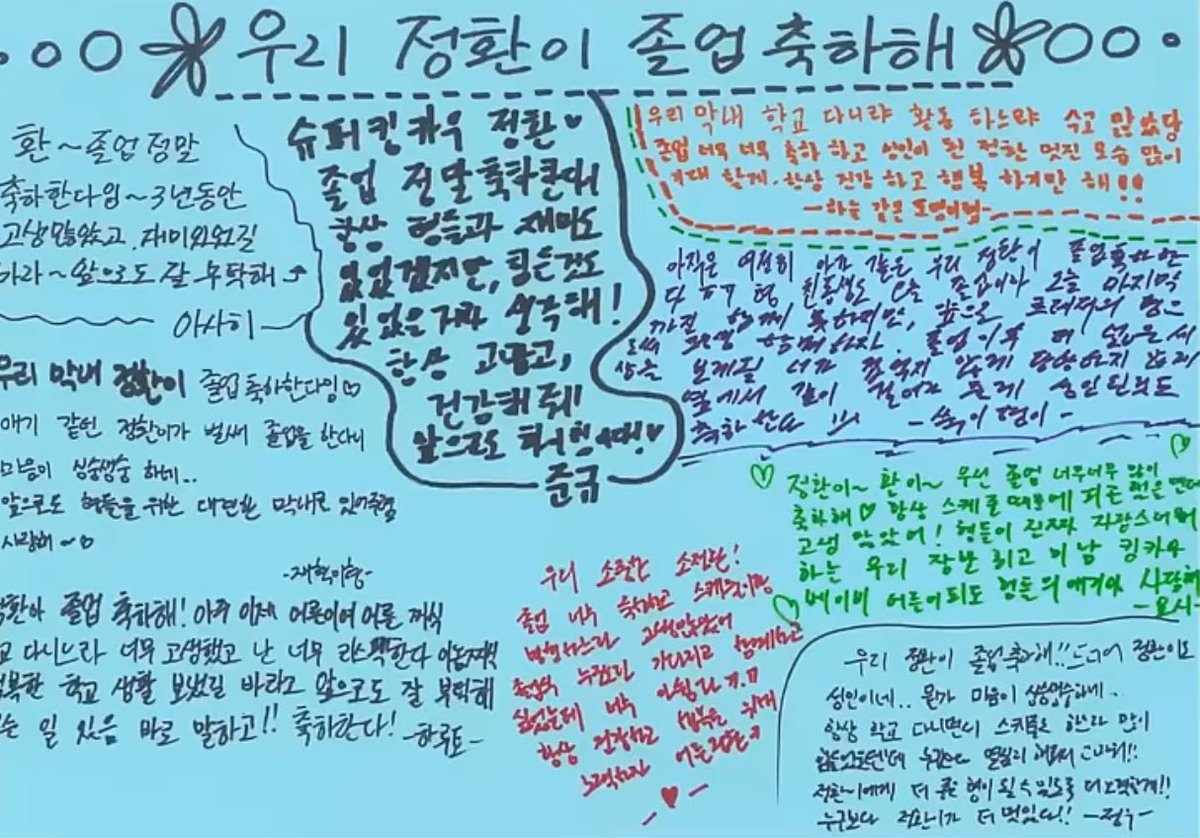 우리 정환이 졸업 축하해
환~졸업 정말
축하한다잉~ 3년동안
고생많았고, 재미있었길
바라~ 앞으로도 잘 부탁해
아사히
슈퍼킹카우 정환♥
졸업 정말 축하한대이
항상 형들과 재미도
있었겠지만, 힘든것도
있었을거라 생각해!
항상 고맙고,
건강해줘!
앞으로도 !♥
준규
우리 막내 학교 다니랴 활동 하느랴 수고 많았당
졸업 너무 너무 축하 하고 성인이 된 정환 멋진 모습 많이
기대 할게. 항상 건강 하고 행복 하게만 해!!
-하늘 같은 도영이형-
아직은 여전히 아가 같은 우리 정환이 졸업 축하한
다 ㅠㅠ 형 졸업이라 오늘 마지막
까진 함께 못하지만, 앞으로 트레저의 형으
로써 평생 함께하자. 졸업 이후 더 넓은 세
상을 보게될 너가 않게 당황하지 않게
옆에서 같이 걸어가 줄게 성인 된것도
축하 한다 !!!
우리 막내 정환이 졸업 축하한다잉♡
애기 같던 정환이가 벌써 졸업을 한다니
마음이 싱숭생숭 하네..
앞으로도 형들을 위한 막내로 있어주렴
사랑해~♡
-재혁이형-
정환이~ 환이~ 우선 졸업 너무너무 많이
축하해♡ 항상 스케줄 때문에 피곤 했을 텐데
고생 많았어! 형들이 진짜 자랑스러워
하는 우리 장난 최고 미남 킹카우
베이비 어른이 되도 형들의 애기야 사랑해
-요시-
정환아 졸업 축하해! 아주 이제 어른이여 어른 짜식
학교 다니느라 너무 고생했고 난 너무 리스펙한다
행복한 학교 생활 보냈길 바라고 앞으로도 잘 부탁해
일 있음 바로 말하고!! 축하한다!
-하루토-
우리 소중한 소정환!
졸업 너무 축하하고 스케줄이랑
병행하느라 고생많았어
졸업식 가고 함께하고
싶었는데 너무 아쉽다 ㅠ.ㅠ
항상 건강하고 행복을 위해
노력하자 어른정환
우리 정환이 졸업축하해!! 드디어 정환이도
성인이네.. 뭔가 마음이 싱숭생숭하네..
항상 학교 다니면서 스케줄도 하느라 많이
힘들었을텐데 누구보다 열심히 해줘서 고마워!!
정환이에게 더 좋은 형이 될 수 있도록 더 노력할게!!
누구보다 정환이가 더 멋있다!! -정우-